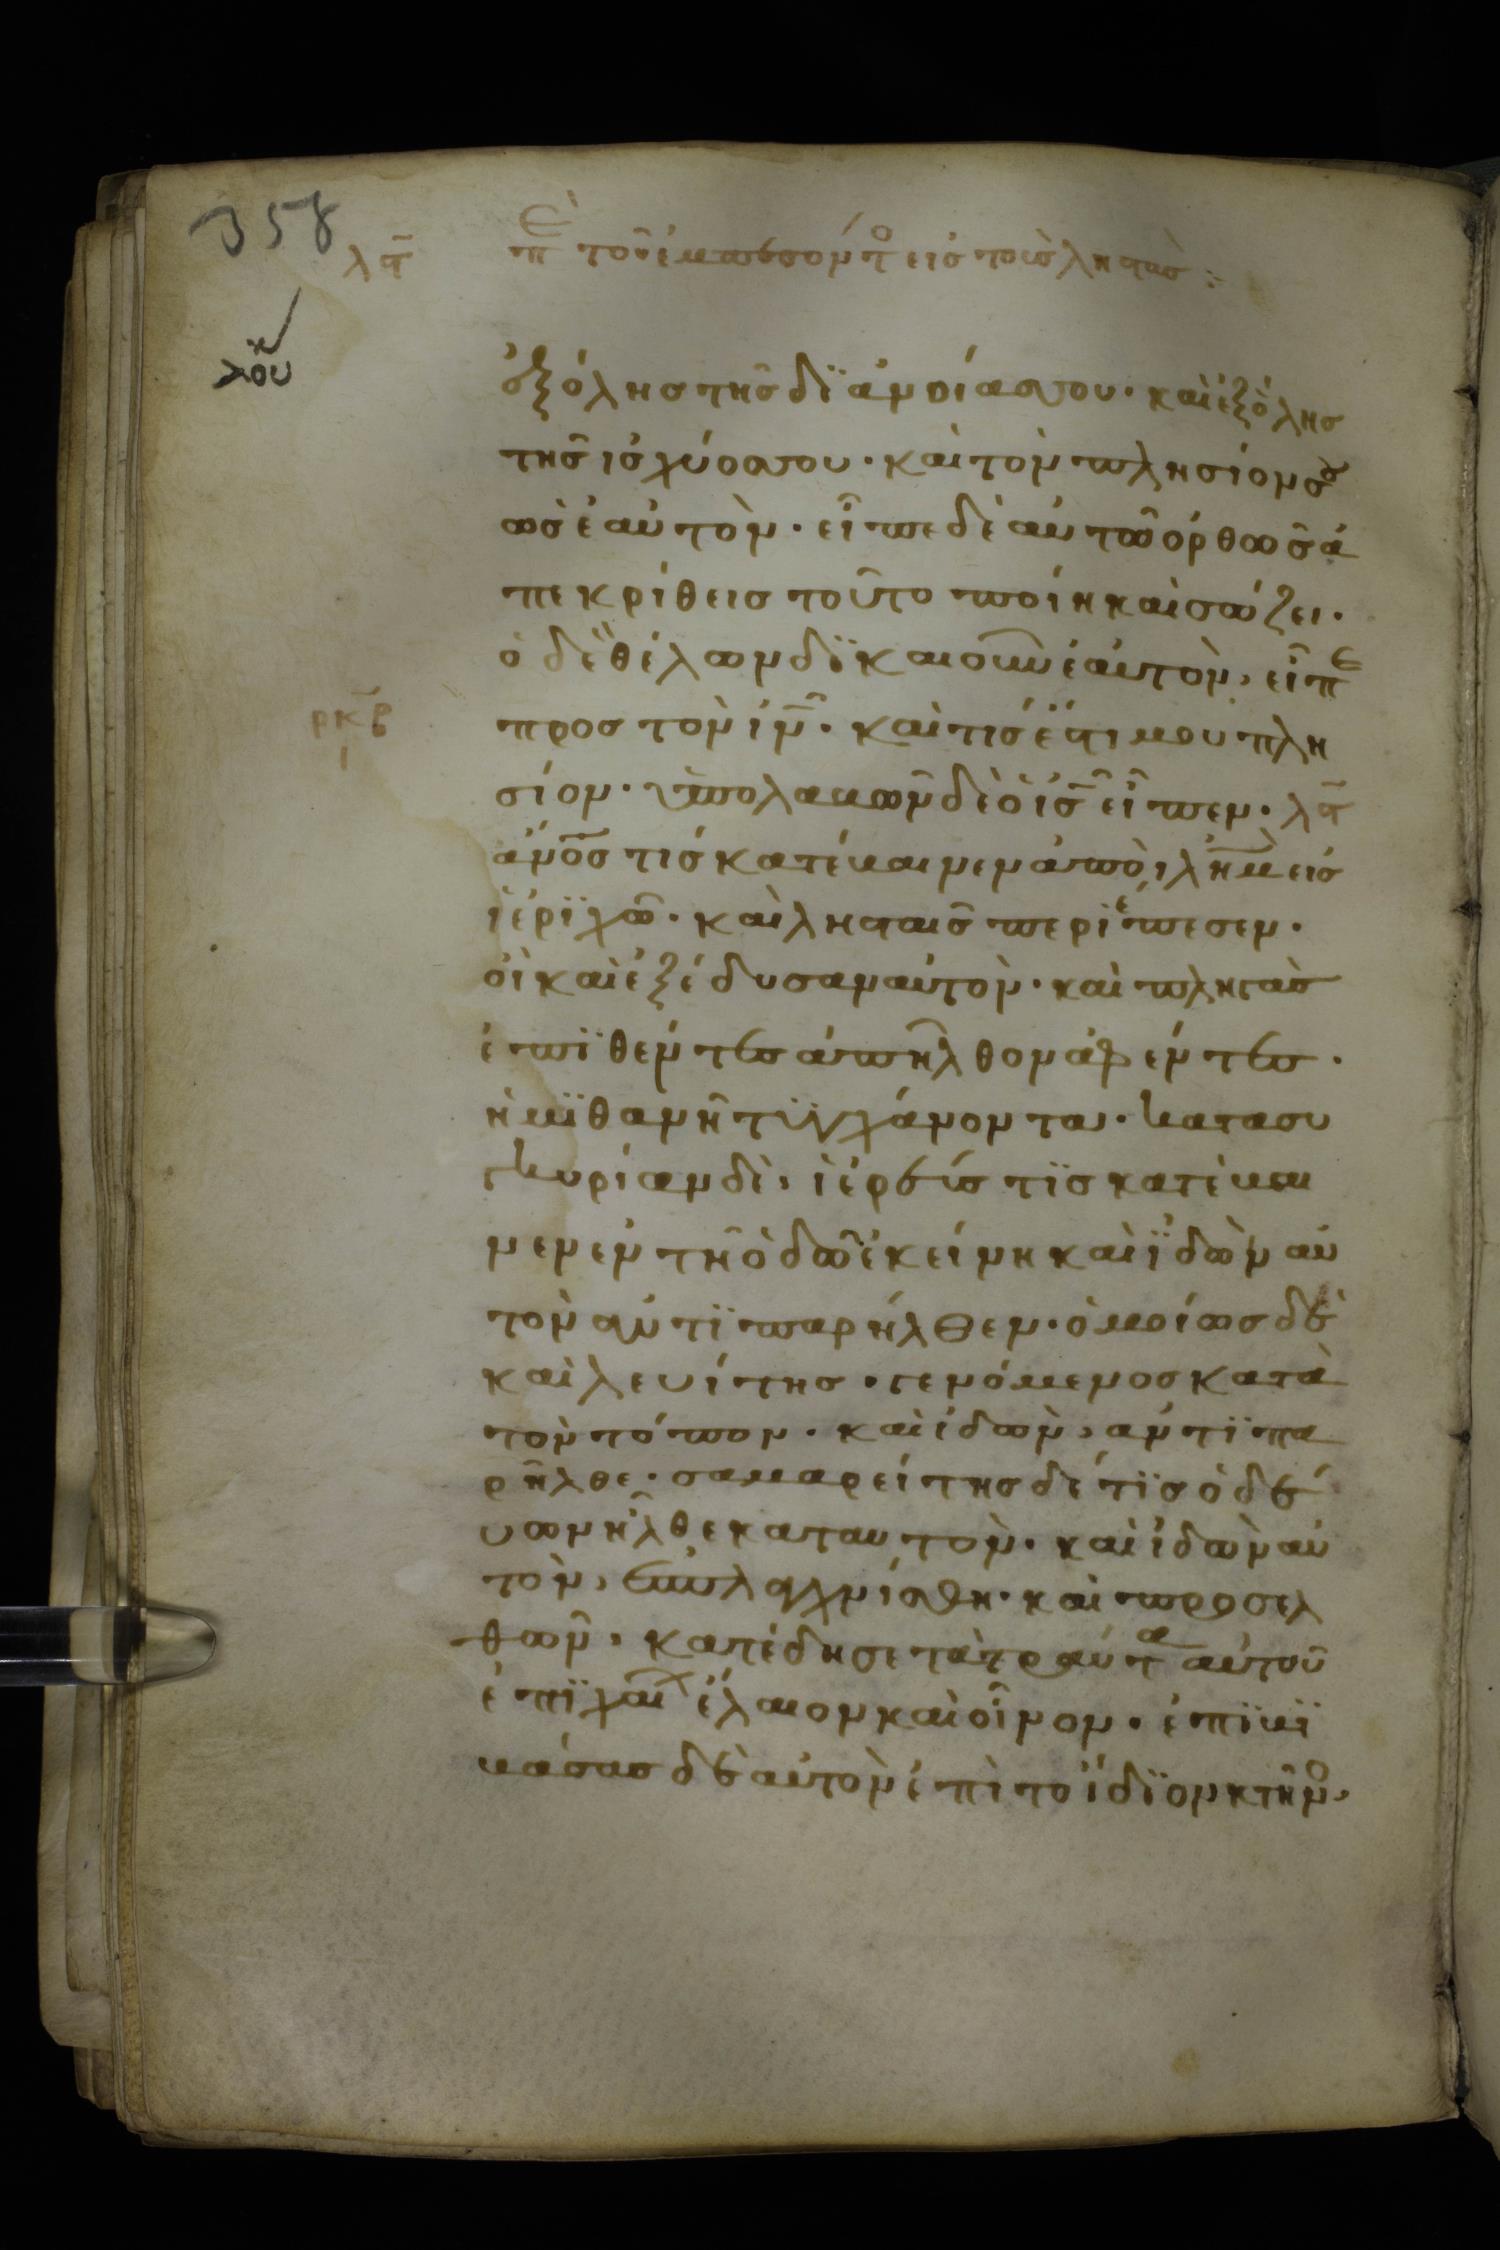 358
λϛ̄ πὲ τοῦ ἐμπεσόντο εἰς τοὺς ληστάς :
λου
ἐξ όλης τῆς διανοίας σου · και ἐξ όλης
τῆς ισχύος σου · και τὸν πλησίον σου
ὡς ἑαυτὸν · εἶπε δὲ αὐτῶ ὀρθῶς ἀ
πεκρίθεις τοῦτο ποίη και σώζει ·
ὁ δὲ θέλων δϊκαιοῦν ἑαυτὸν, εἶπε
ρκβ
ι
προς τὸν ιν̄ · και τίς ἔστι μου πλη
σίον · ὑπολαβὼν δὲ ὁ ις̄ εἶπεν · λϛ̄
ἀνο̄ς τίς κατέβαινεν ἀπὸ ιλη̄μ εἰς
ϊέρϊχῶ · και λησταῖς περιέπεσεν ·
οἱ και ἐξέδυσαν αὐτὸν · και πληγὰς
ἐπϊθέντες ἀπῆλθον ἀφέντες ·
ἡμϊθανῆ τϋγχάνοντα · κατασυ
γκυρίαν δὲ, ϊέρεύς τϊς κατέβαι
νεν ἐν τῆ ὁδῶ ἐκείνη και ϊδὼν αὐ
τὸν ἀντϊπαρήλθεν · ὁμοίως δὲ
και λευίτης · γενόμενος κατὰ
τὸν τόπον · και ἰδὼν, ἀντϊπα
ρῆλθε · σαμαρείτης δέ τϊς ὁδεύ
υων ἦλθε καταυτὸν · και ἰδὼν αὐ
τὸν, ἐσπλαγχνίσθη · και προσελ
θὼν, κατέδησε τὰ τραύτα αὐτοῦ
ἐπϊχαί ἔλαιον και οἶνον · ἐπϊβϊ
βάσας δὲ αὐτὸν ἐπὶ το ἴδϊον κτῆνο,